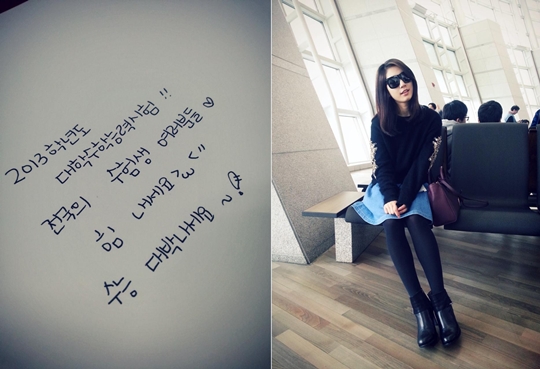 2013학년도
대학수학능력시험!!
전국의 수험생 여러분들♡
힘 내세요<3<"
수능 대박나세요~